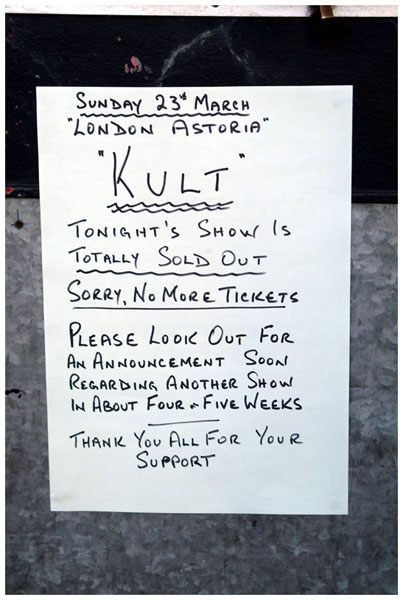 SUNDAY 23rd MARCH
"LONDON ASTORIA"
"KULT"
TONIGHT'S SHOW IS
TOTALLY SOLD OUT
SORRY, NO MORE TICKETS
PLEASE LOOK OUT FOR
AN ANNOUNCEMENT SOON
REGARDING ANOTHER SHOW
IN ABOUT FOUR - FIVE WEEKS
THANK YOU ALL FOR YOUR
SUPPORT